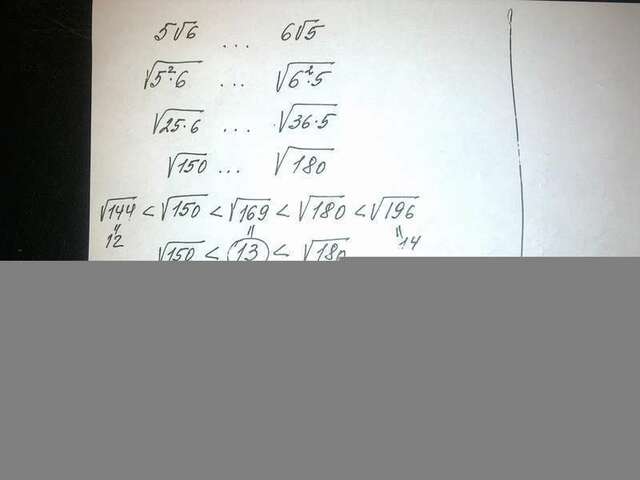 5√6 ... 6√5
√5²·6 ... √6²·5
√25·6 ... √36·5
√150 ... √180
√144 < √150 < √169 < √180 < √196
" " "
12 14
√150 < 13 < √180